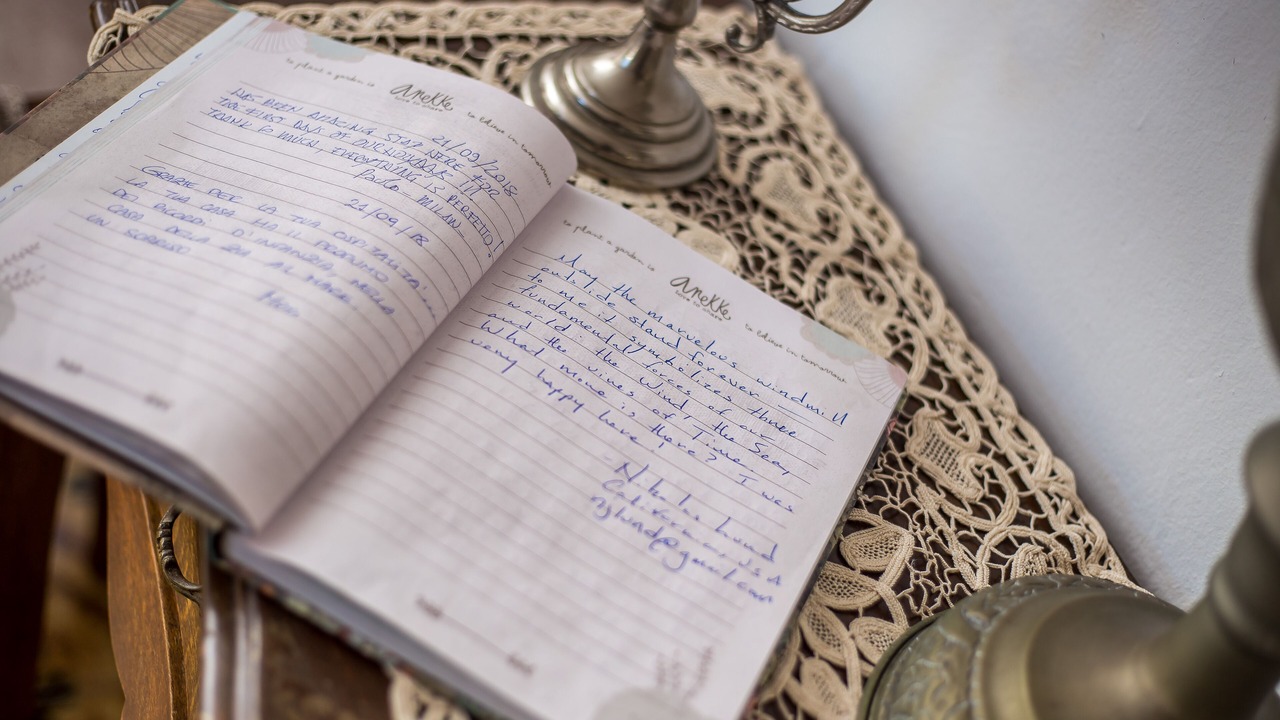 to plant a garden is
anekke
to believe in tomorrow
21/09/2018
HAS BEEN AMAZING STAY HERE FOR
THE FIRST DAYS OF OUR
THANK SO MUCH, EVERYTHING IS PERFETTO!
Paolo MILAN
21/09/18
GRAZIE PER LA TUA OSPITALITA'
LA TUA CASA HA IL PROFUMO
DEI RICORDI D'INFANZIA, NELLA
CASA DELLA AL MARE.
UN SORRISO
to plant a garden is
anekke
to believe in tomorrow
May the marvelous windmill
outside stand forever
to me it symbolizes three
fundamental forces of our
world: the Wind, the Sea,
and the vines of Time.
What more is there? I was
very happy here,
California, USA